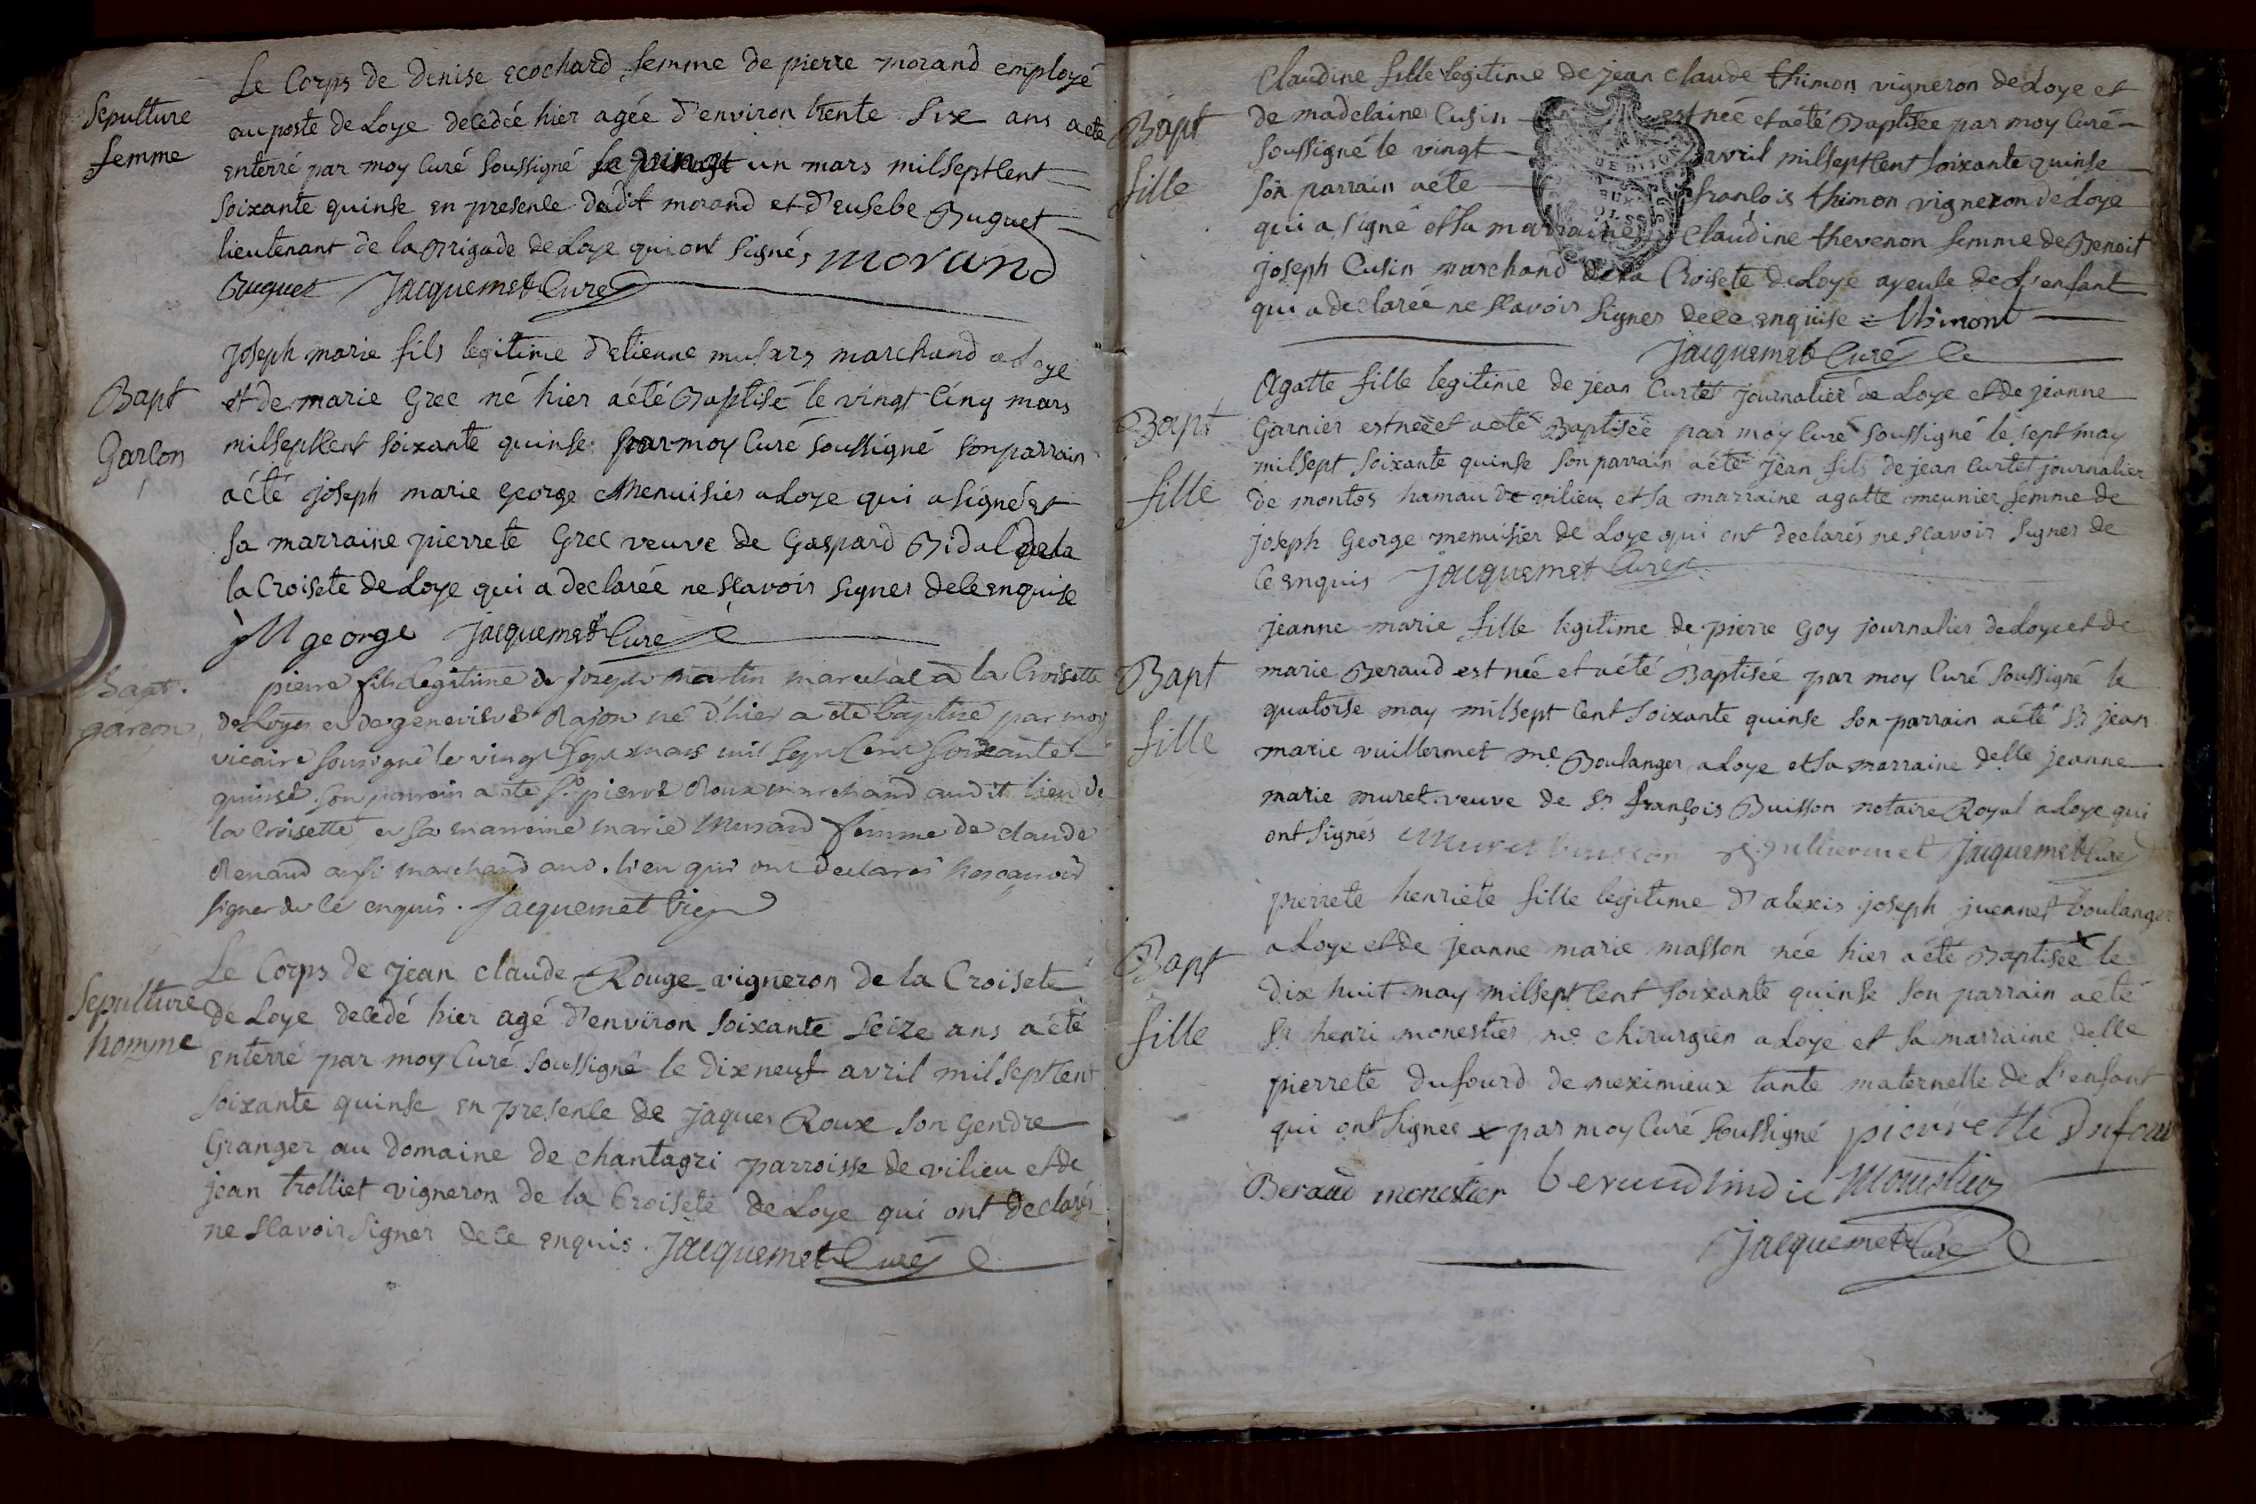 Sepulture
femme
Le Corps de denise ecochard femme de pierre morand employé
au poste de Loye decedée hier agée d'environ trente Six ans a ete
enterré par moy Curé Soussigné le vingt un mars mil Sept Cent
Soixante quinse en presence dudit morand et d'eusebe Buguet
lieutenant de la Brigade de Loye qui ont Signés morand
Buguet Jacquemet Curé
Bapt
Garcon
joseph marie fils legitime d'etienne musard marchand a Loye
et de marie Grec né hier a été Baptisé le vingt Cinq mars
mil Sept Cent Soixante quinse par moy Curé Soussigné Son parrain
a été joseph marie george Menuisier a Loye qui a Signé et
Sa marraine pierrete Grec veuve de Gaspard Bidal de la
la Croisete de Loye qui a declarée ne Scavoir Signer de ce enquise
JM george Jacquemet Curé
bapt.
garcon
pierre fils Legitime de joseph martin marechal a la Croisette
de Loyes et de genevieve Rajon né d'hier a ete baptisé par moy
vicaire soussigné le vingt sept mars mil sept Cent soixante
quinse. son parrain a ete Sr pierre Roux marchand audit lieu de
la Croisette et sa marreine marie Musard femme de claude
Renaud aussi marchand aud. lieu qui ont declarés ne scavoir
signer de ce enquis. Jacquemet vic
Sepulture
homme
Le Corps de jean claude Rouge vigneron de la Croisete
de Loye decedé hier agé d'environ Soixante Seize ans a été
enterré par moy Curé Soussigné le dix neuf avril mil Sept Cent
Soixante quinse en presence de jaques Roux Son Gendre
Granger au domaine de chantagri parroisse de vilieu et de
jean trolliet vigneron de la Croisete de Loye qui ont declarés
ne Scavoir Signer de ce enquis. Jacquemet Curé
Bapt
fille
Claudine fille legitime de jean claude thimon vigneron de Loye et
de madelaine Cusin est née et a été Baptisée par moy Curé
Soussigné le vingt avril mil Sept Cent Soixante quinse
Son parrain a été francois thimon vigneron de Loye
qui a Signé et Sa marraine Claudine thevenon femme de Benoit
joseph Cusin marchand de la Croisete de Loye ayeule de l'enfant
qui a declarée ne Scavoir Signer de ce enquise Thimont
Jacquemet Curé
Bapt
fille
Agatte fille legitime de jean Curtet journalier de Loye et de jeanne
Garnier est née et a eté Baptisée par moy Curé Soussigné le Sept may
mil Sept Soixante quinse Son parrain a été jean fils de jean Curtet journalier
de montos hamau de vilieu et Sa marraine agatte meunier femme de
joseph George menuisier de Loye qui ont declarés ne Sçavoir Signer de
ce enquis Jacquemet Curé
Bapt
fille
jeanne marie fille legitime de pierre Goy journalier de Loye et de
marie Beraud est née et a été Baptisée par moy Curé Soussigné le
quatorse may mil Sept Cent Soixante quinse Son parrain a été Sr jean
marie vuillermet me Boulanger a Loye et Sa marraine delle jeanne
marie muret veuve de Sr françois Buisson notaire Royal a Loye qui
ont Signés Muret buisson vuillermet Jacquemet Curé
Bapt
fille
pierrete henriete fille legitime d'alexis joseph juennet boulanger
a Loye et de jeanne marie masson née hier a été Baptisée x le
dix huit may mil Sept Cent Soixante quinse Son parrain a eté
Sr henri monestier me chirurgien a Loye et Sa marraine delle
pierrete dufourd de meximieux tante maternelle de L'enfant
qui ont Signés x par moy Curé Soussigné pierrette Dufour
Beraud monestier beraud sindic Monestier
Jacquemet Curé